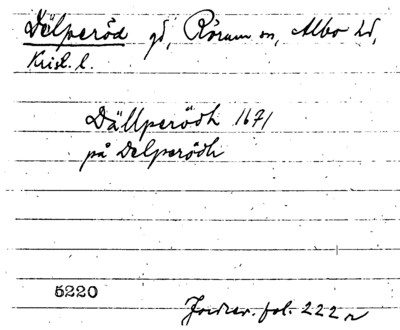 Dälperöd gd, Rörum sn, Albo hd,
Krist. l.
Dällperödh 1671
på Delperödh
5220
Jordrev. fol. 222 r